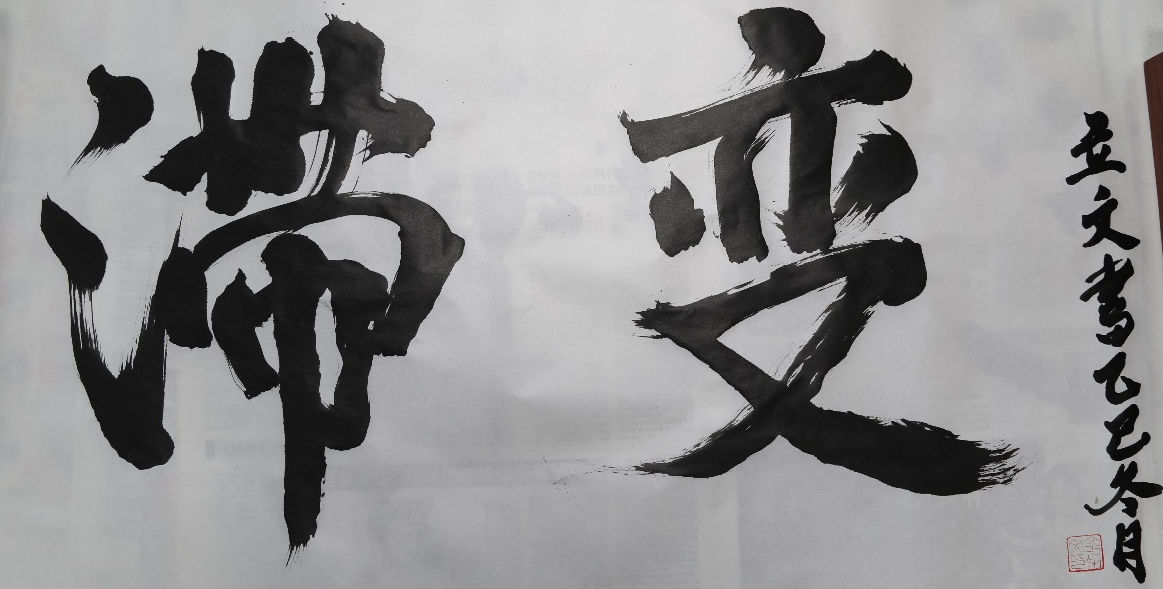 滞变
立文書乙巳冬月